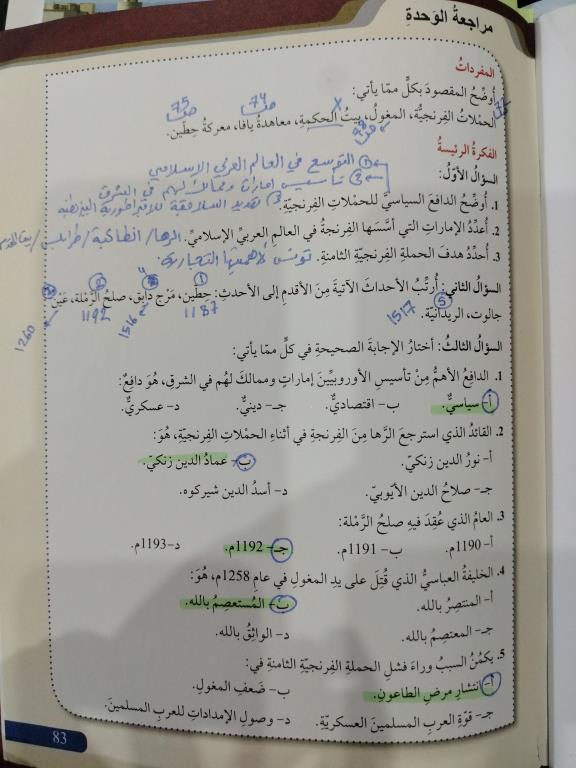 مراجعةُ الوَحدةِ
المفرداتُ
أُوضِّحُ المقصودَ بكلٍّ ممّا يأتي:
ص 75 ص 74 X
الحملاتُ الفِرنجيَّةُ، المغولُ، بيتُ الحكمةِ، معاهدةُ يافا، معركةُ حِطّين.
ص 78
الفكرةُ الرئيسةُ
① التوسع في العالم العربي الإسلامي
السؤالُ الأوّلُ:
② تأسيس إمارات وممالك لهم في الشرق
③ تهديد السلاجقة للامبراطورية البيزنطية
1. أُوضِّحُ الدافعَ السياسيَّ للحملاتِ الفِرنجيّةِ.
2. أُعدِّدُ الإماراتِ التي أسَّسَها الفِرنجةُ في العالمِ العربيِّ الإسلاميِّ. الرها/ انطاكية/ طرابلس/ بيت المقدس
3. أُحدِّدُ هدفَ الحملةِ الفِرنجيّةِ الثامنةِ. تونس لأهميتها التجارية
السؤالُ الثاني: أُرتِّبُ الأحداثَ الآتيةَ مِنَ الأقدمِ إلى الأحدثِ: حِطّين، مَرْج دابِق، صلحُ الرَّملة، عَيْن
جالوت، الريدانيّة.
① ② ⑤
1187 1516 1192 1260 1517
السؤالُ الثالثُ: أختارُ الإجابةَ الصحيحةَ في كلٍّ ممّا يأتي:
1. الدافعُ الأهمُّ مِنْ تأسيسِ الأوروبيِّينَ إماراتٍ وممالكَ لهُم في الشرقِ، هُوَ دافعٌ:
أ- سياسيٌّ. ب- اقتصاديٌّ. جـ- دينيٌّ. د- عسكريٌّ.
2. القائدُ الذي استرجعَ الرَّها مِنَ الفِرنجةِ في أثناءِ الحملاتِ الفِرنجيّةِ، هُوَ:
أ- نورُ الدين زنكيّ. ب- عمادُ الدين زنكيّ.
جـ- صلاحُ الدين الأيّوبيّ. د- أسدُ الدين شيركوه.
3. العامُ الذي عُقِدَ فيهِ صلحُ الرَّمْلة:
أ- 1190م. ب- 1191م. جـ- 1192م. د- 1193م.
4. الخليفةُ العباسيُّ الذي قُتِلَ على يدِ المغولِ في عامِ 1258م، هُوَ:
أ- المنتصِرُ بالله. ب- المُستعصِمُ بالله.
جـ- المعتصِمُ بالله. د- الواثِقُ بالله.
5. يكمُنُ السببُ وراءَ فشلِ الحملةِ الفِرنجيّةِ الثامنةِ في:
أ- انتشارِ مرضِ الطاعونِ. ب- ضَعفِ المغولِ.
جـ- قوّةِ العربِ المسلمينَ العسكريّةِ. د- وصولِ الإمداداتِ للعربِ المسلمينَ.
83